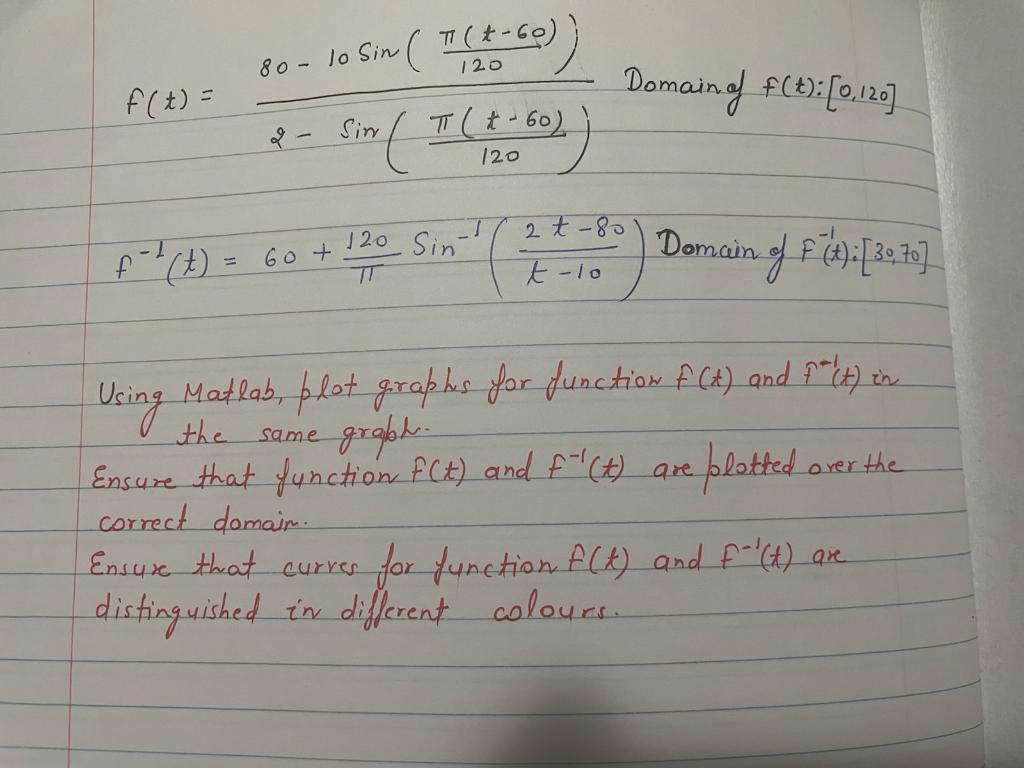 f(t) = (80 - 10 Sin(π(t-60)/120)) / (2 - Sin(π(t-60)/120)) Domain of f(t):[0,120]
f⁻¹(t) = 60 + 120/π Sin⁻¹((2t-80)/(t-10)) Domain of F⁻¹(t):[30,70]
Using Matlab, plot graphs for function f(t) and f⁻¹(t) in
the same graph.
Ensure that function f(t) and f⁻¹(t) are plotted over the
correct domain.
Ensure that curves for function f(t) and f⁻¹(t) are
distinguished in different colours.